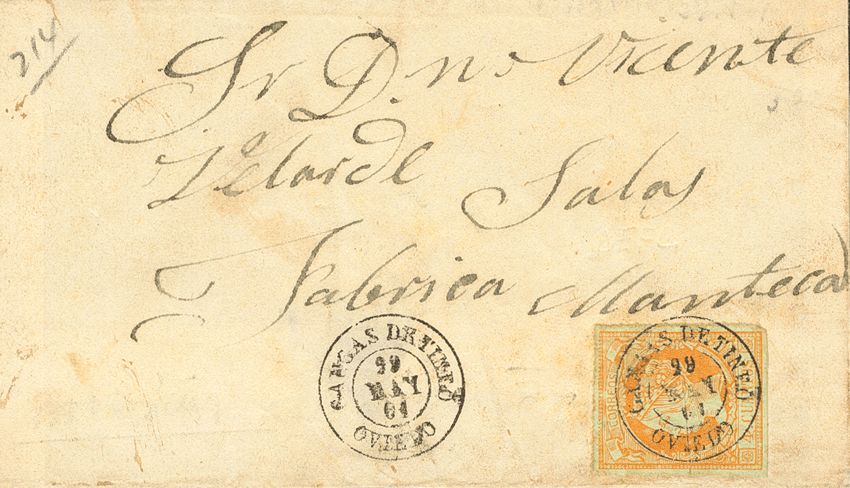 214
Sr D.n Vicente
Velarde Salas
Fabrica Manteca
CANGAS DE TINEO
29
MAY
61
OVIEDO
CANGAS DE TINEO
29
MAY
61
OVIEDO
CORREOS